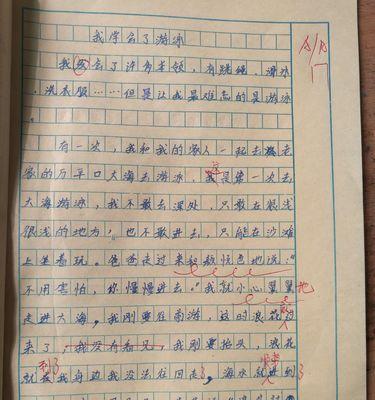 我学会了游泳
我学会了许多本领，有跳绳、滑冰
、洗衣服……但是让我最难忘的是游泳
。
有一次，我和我的家人一起去老
家的万平口大海去游泳，我是第一次去
大海游泳，我不敢去深处，只敢在很浅
很浅的地方，也不敢进去，只能在沙滩
上坐着玩。爸爸走过来和颜悦色地说：“
不用害怕，你慢慢进去。”我就小心翼翼地
走进大海，我刚要往前游，这时浪花
来了，我没有看见，我刚要抬头，浪花
就到了我身边我没法往回走了，海水就进到